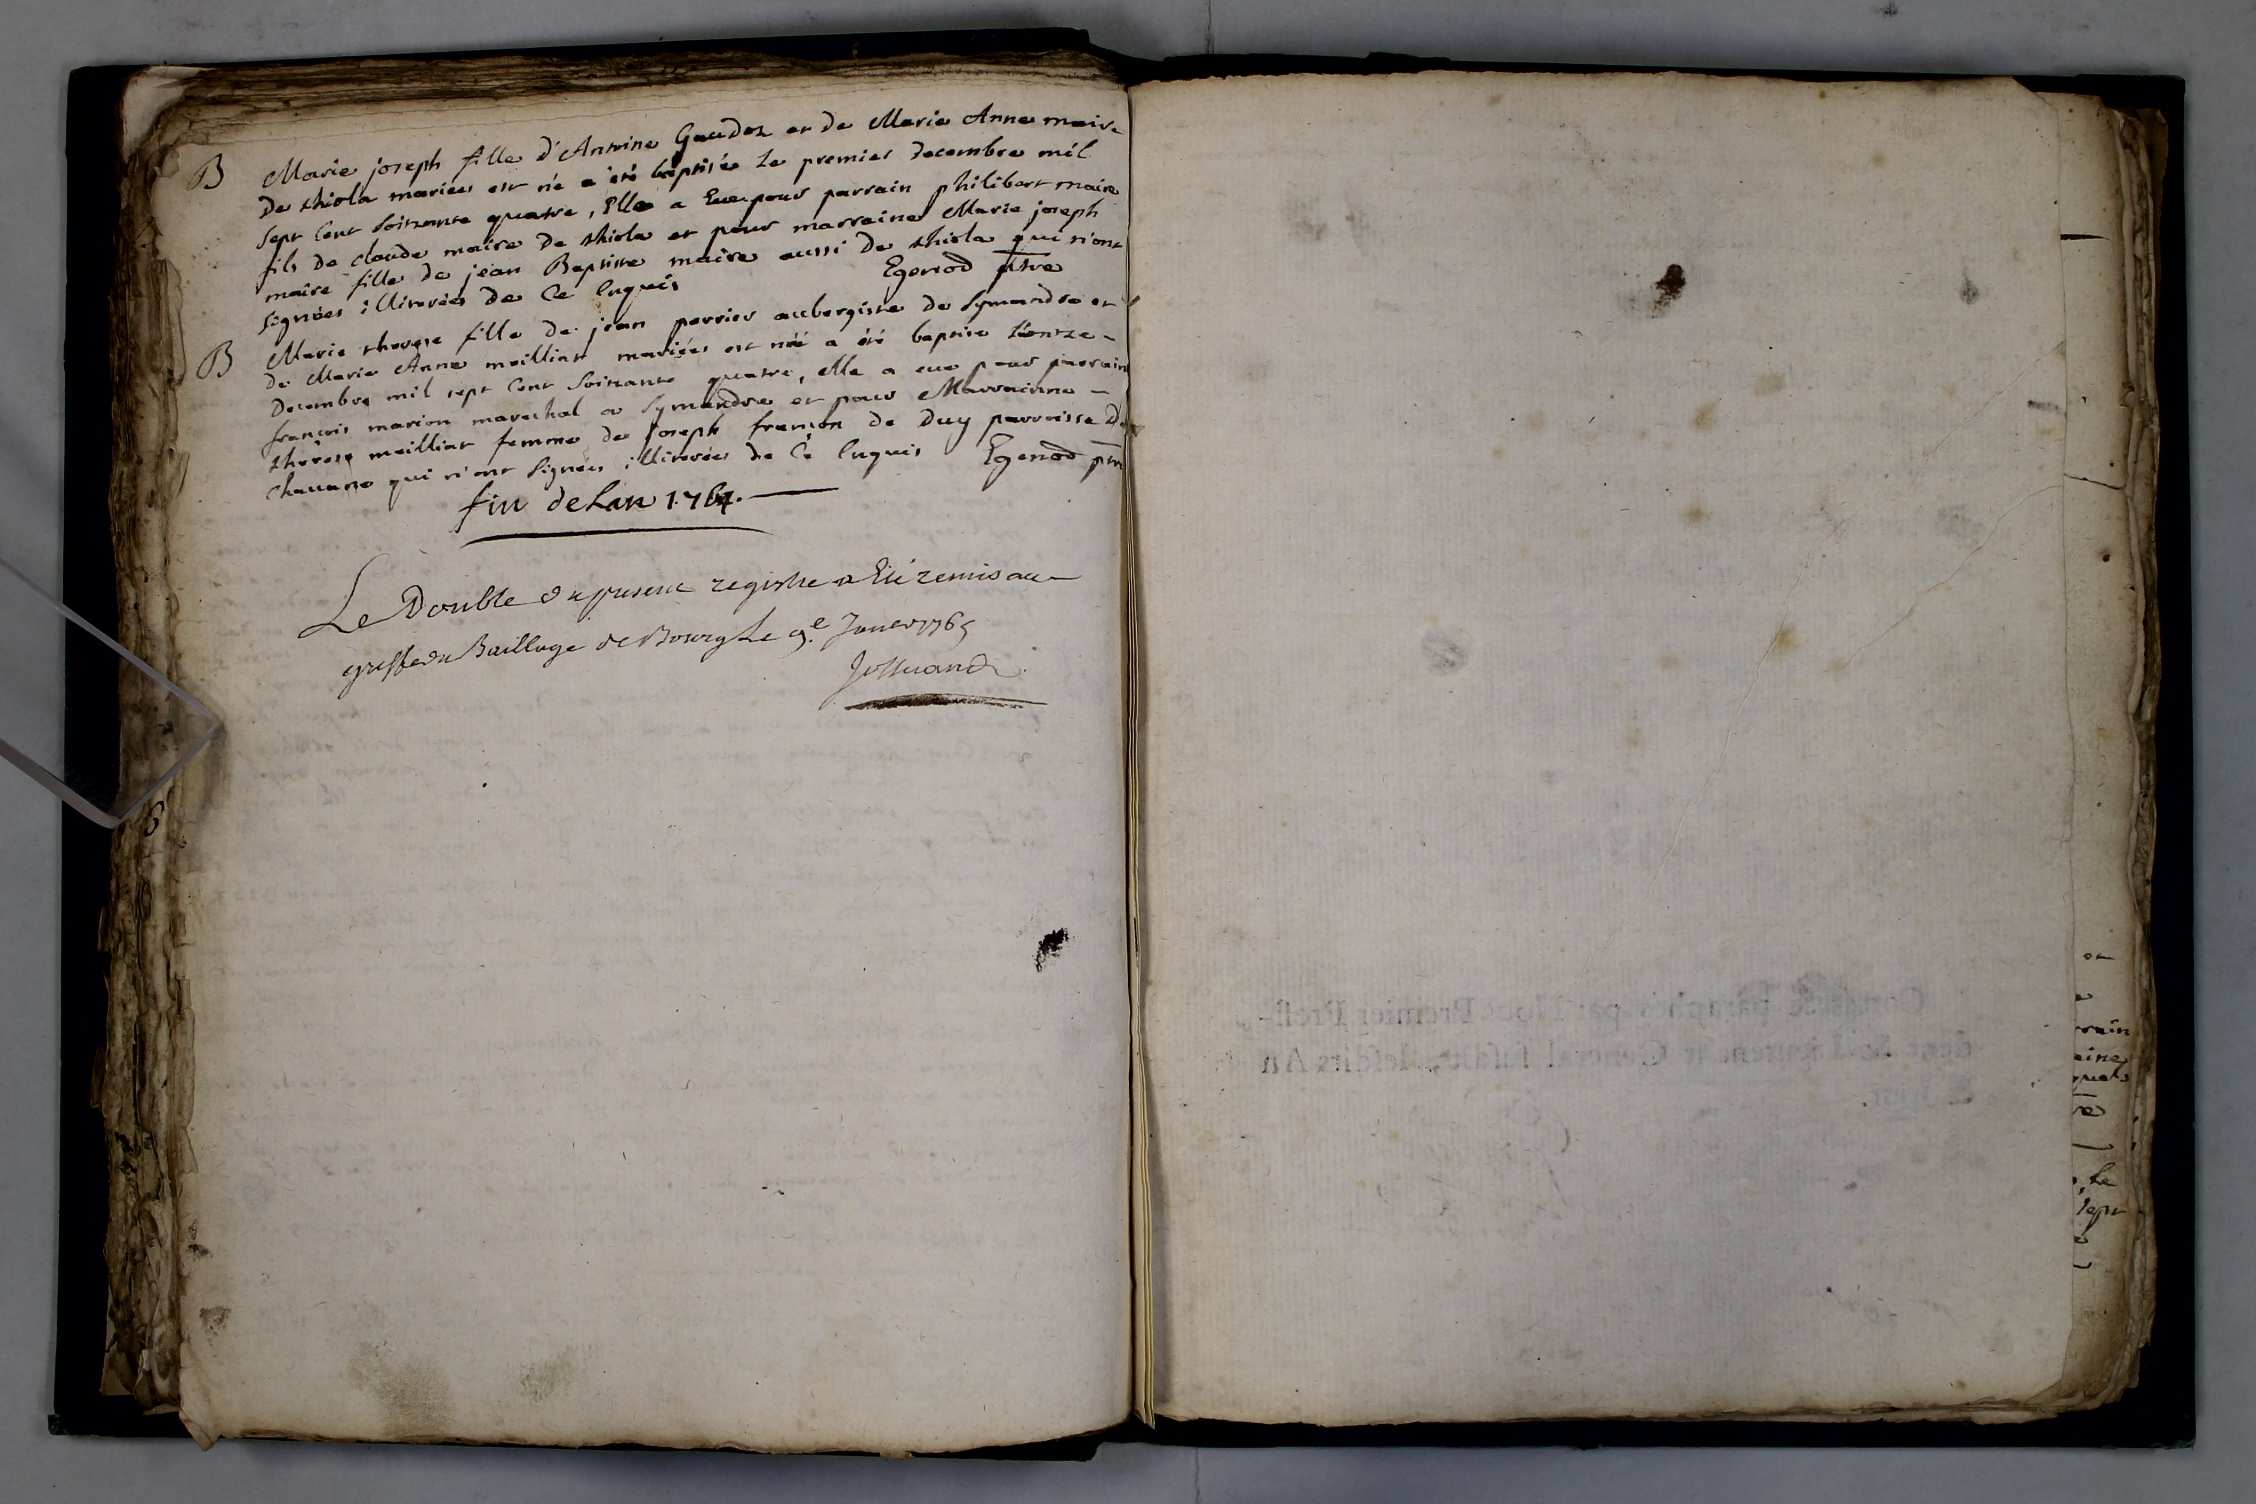 B Marie joseph fille d'Antoine Gaudoz et de Marie Anne maire
de thiola mariées est née a été baptisée Le premier decembre mil
sept Cent soixante quatre, Elle a Eue pour parrain philibert maire
fils de claude maire de thiola et pour marraine Marie joseph
maire fille de jean Baptiste maire aussi de thiola qui n'ont
signées illiterées de Ce Enquis Egenod ptre
B Marie therese fille de jean perrier aubergiste de Symandre et
de Marie Anne meilliat mariées est née a été baptise L'ontze -
Decembre mil sept Cent soixante quatre, elle a eue pour parrain
françois marion marechal a Symandre et pour Marrainne -
therese meilliat femme de joseph françon de Duy parroisse De
Chauanne qui n'ont signées illiterées de Ce Enquis Egenod ptre
fin de Lan 1764.
Le Double du present registre a Eté remis au
greffe du Baillage de Bourg Le 9.e Janer 1765
rain
eine
la
sept